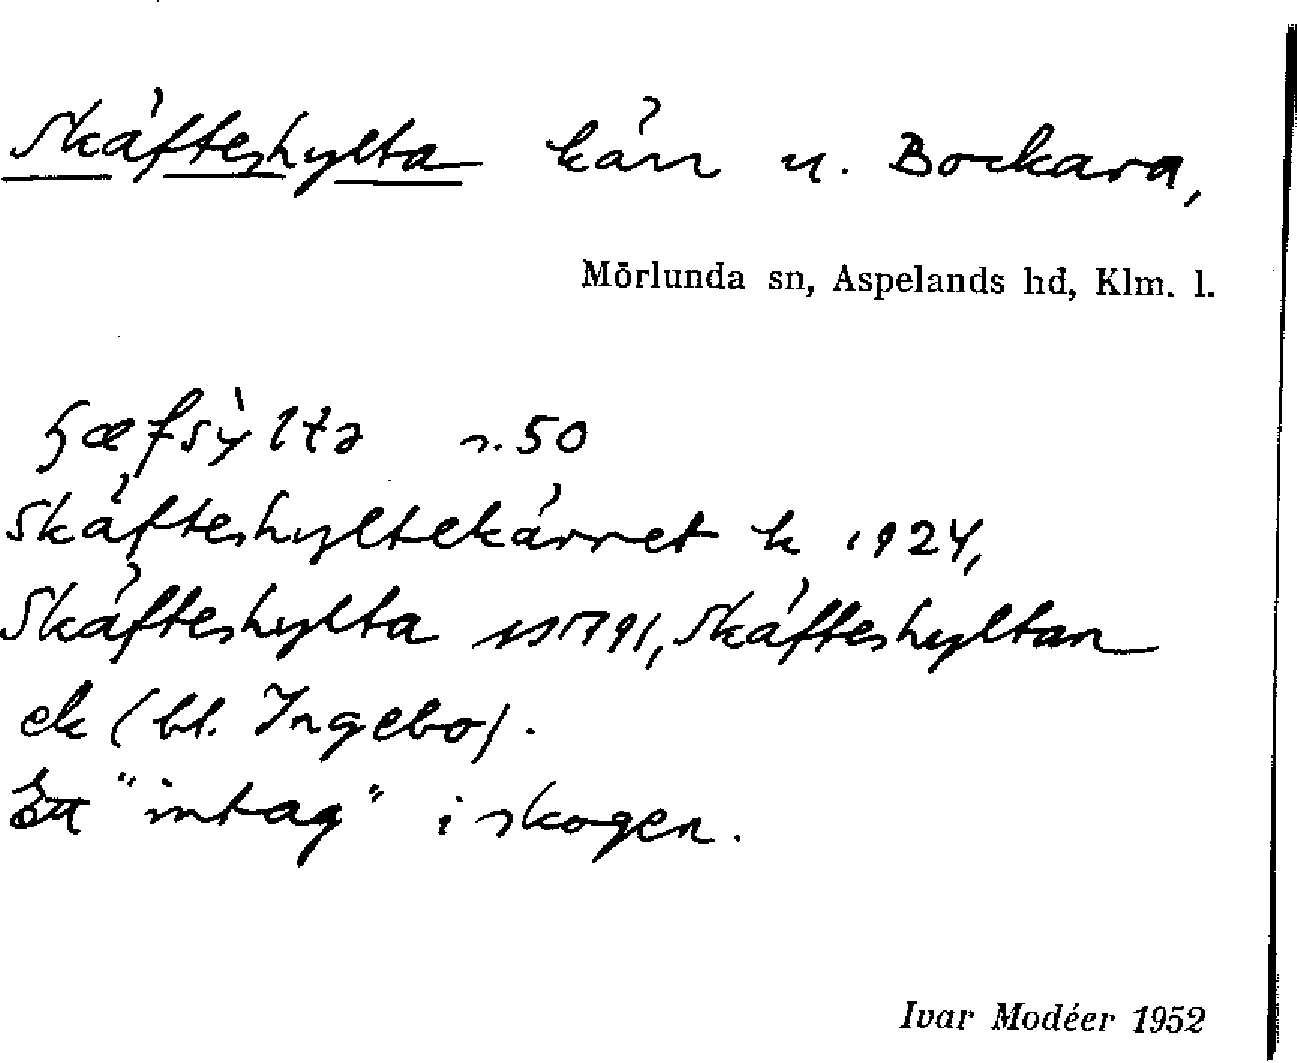 Skäfteshylta kärr u. Bockara,
Mörlunda sn, Aspelands hd, Klm. l.
ɧæfsỳltə r. 50
Skäfteshyltekärret k 1924,
Skäfteshylta 1791, Skäfteshyltan
ek (bl. Ingebo).
Ett "intag" i skogen.
Ivar Modéer 1952